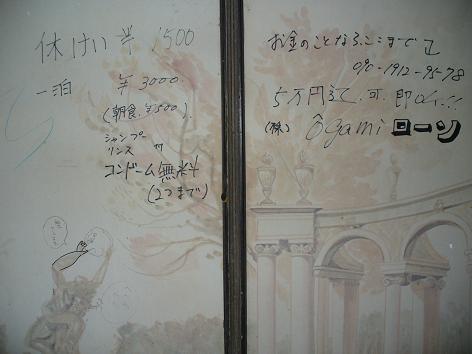 休けい ¥ 1500
一泊 ¥ 3000.
(朝食.¥500)
シャンプー
リンス
コンドーム無料
(2つまで)
お金のことならここまで
5万円まで.可.即OK!!
(株) Ôgami ローン